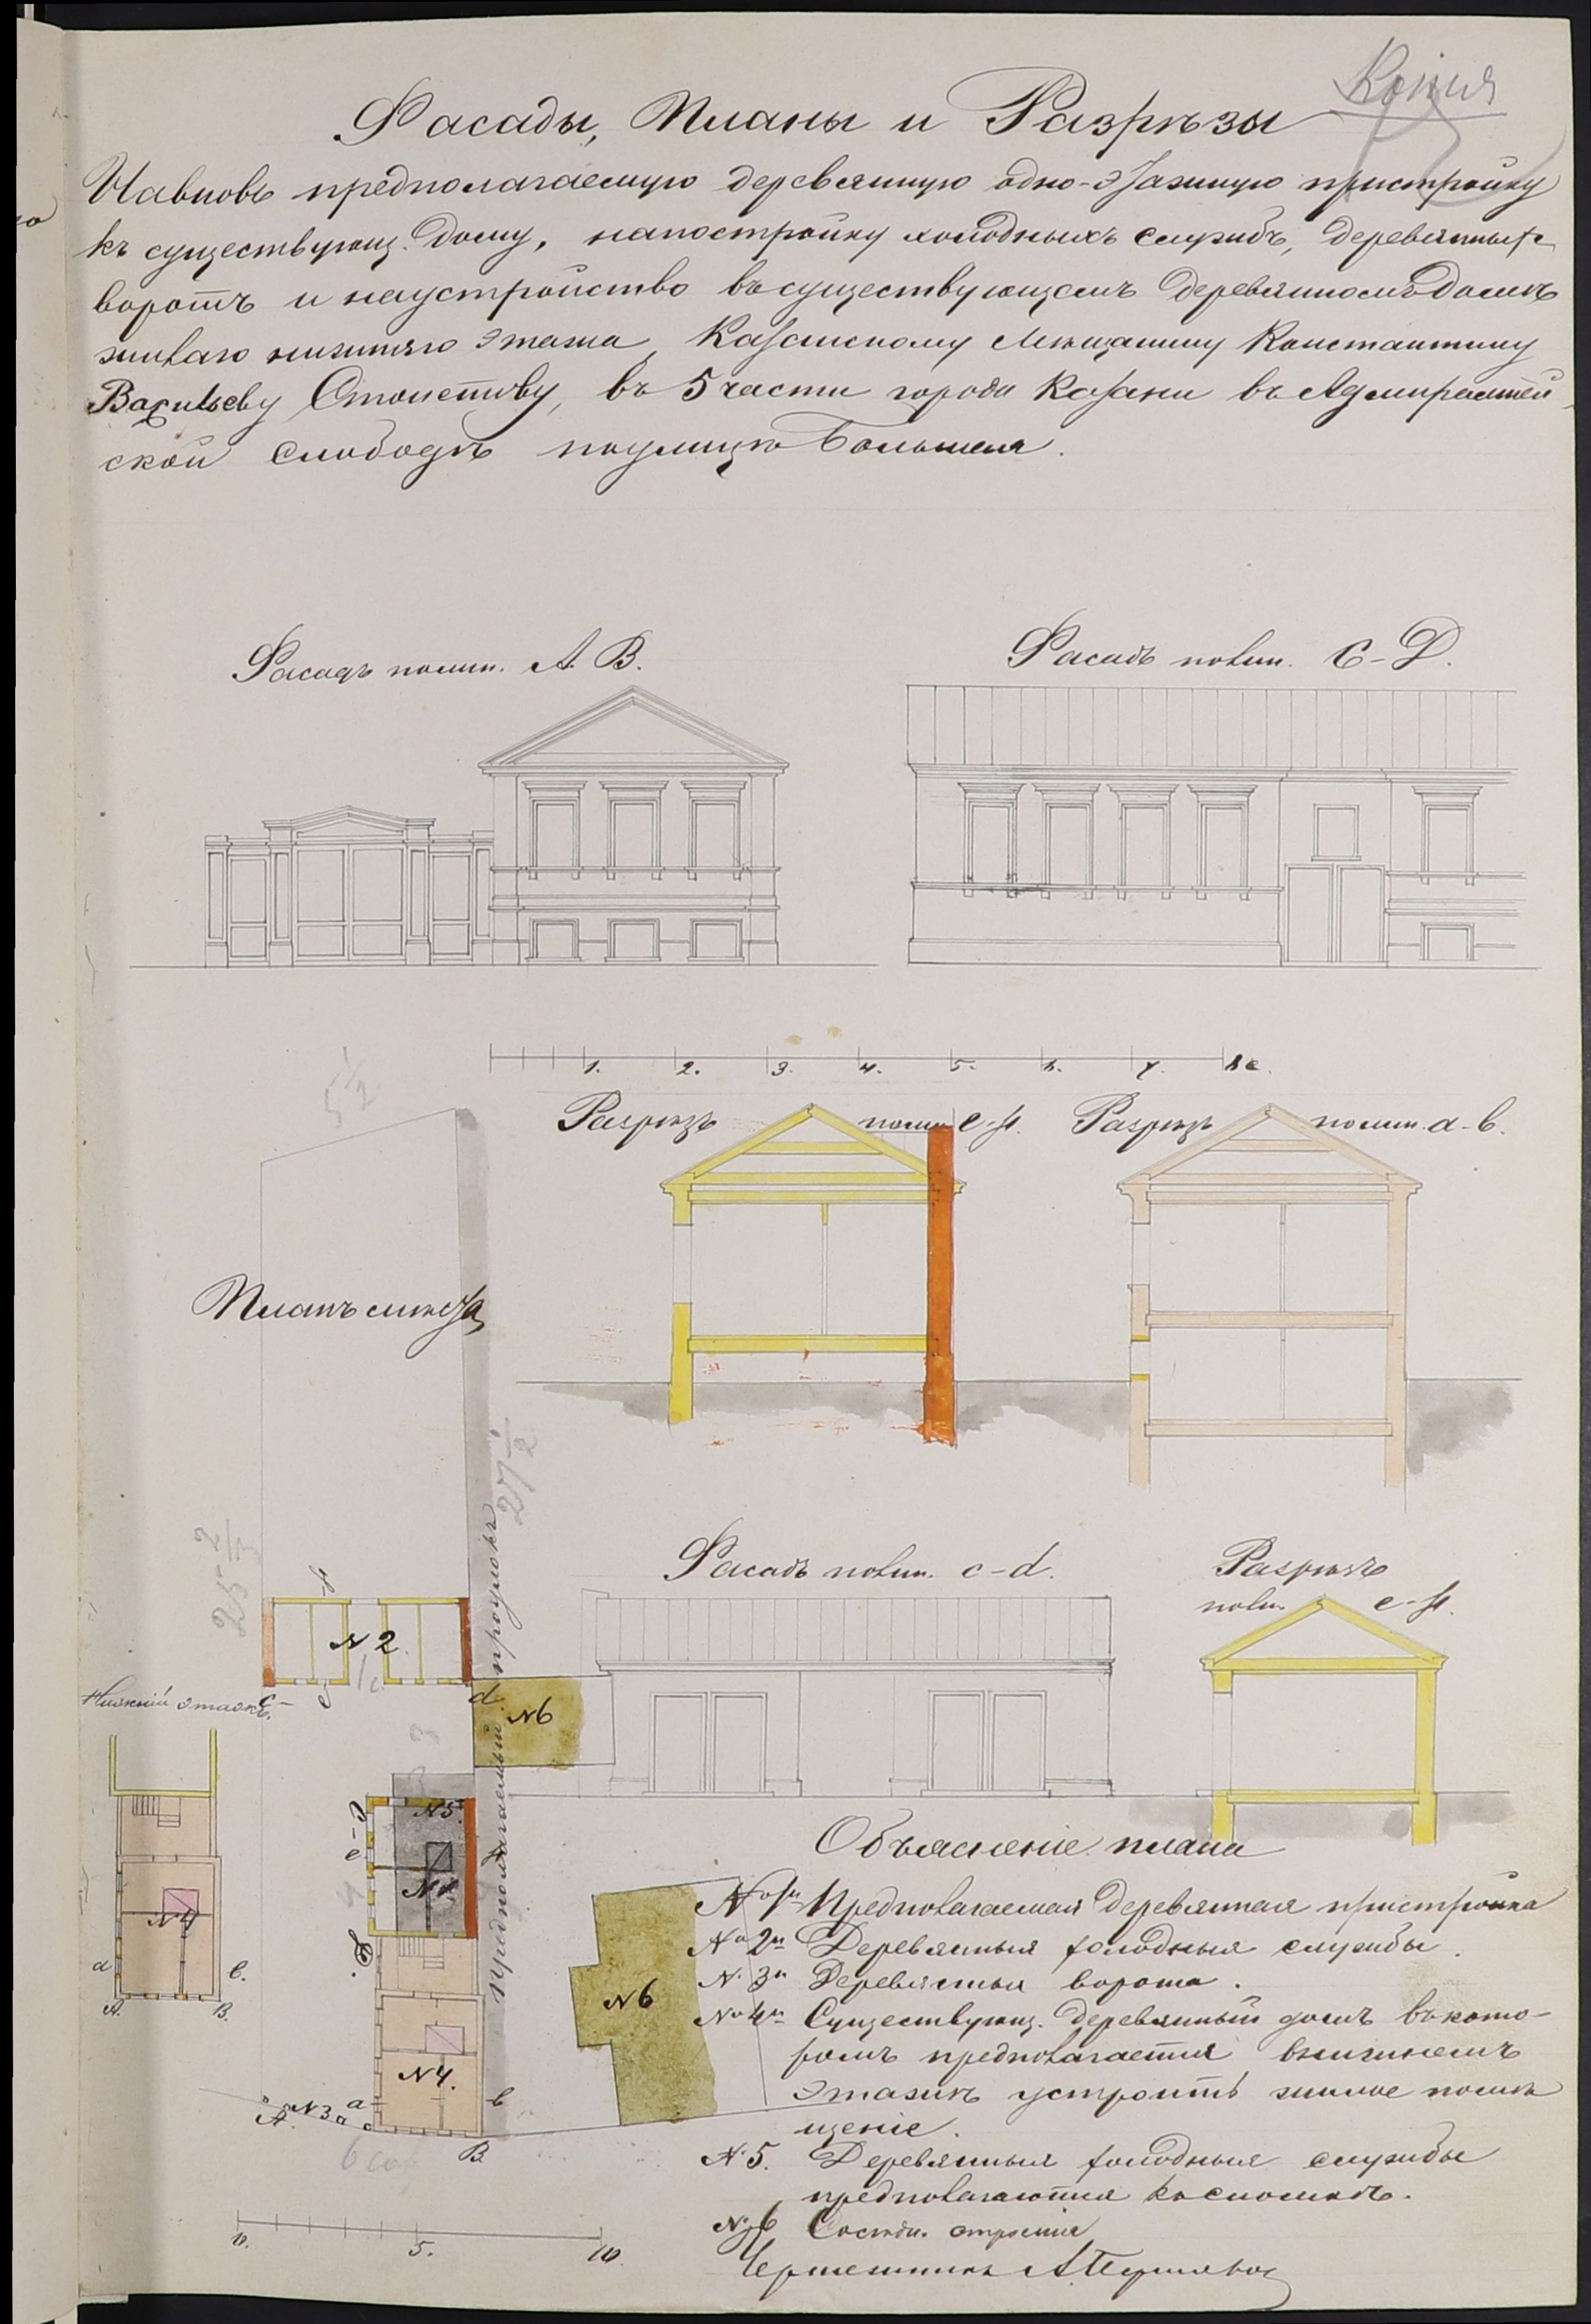 Копія
Фасады, Планы и Разрѣзы
Навновь предполагаемую деревянную одно-этажную пристройку
къ существующ. дому, напостройку холодныхъ службъ, деревянныхъ
воротъ и наустройство въ существующемъ деревянномъ домѣ
жилаго нижняго этажа, Казанскому Мѣщанину Константину
Васильеву въ 5 части города Казани въ Адмиралтей-
ской слободѣ поулицѣ Большая.
Фасадъ полин. А. В.
Фасадъ полин. С-D.
1. 2. 3. 4. 5. 6. 7. 8 с.
5 1/2
Разрѣзъ полин. e-f.
Разрѣзъ полин. a-b.
Планъ мѣста
27 1/2
25 2/3
Фасадъ полин. c-d.
Разрѣзъ
полин. e-f.
f
N 2
Нижній этажъ.
c
e
d
N6
предполагаемый проулокъ
N5
e
N1
f
N4
a
b.
А.
В.
N6
N4.
a
b
А.
N3
В
6 саж
0. 5. 10.
Объясненіе плана
№ 1й Предполагаемая деревянная пристройка
№ 2й Деревянныя холодныя службы.
№ 3й Деревянныя ворота.
№ 4й Существующ. деревянный домъ въкото-
ромъ предполагается внижнемъ
этажѣ устроить жилое помѣ
щеніе.
N 5. Деревянныя холодныя службы
предполагаются къ сломкѣ.
N 6 Сосѣдн. строенія
Чертежникъ А.